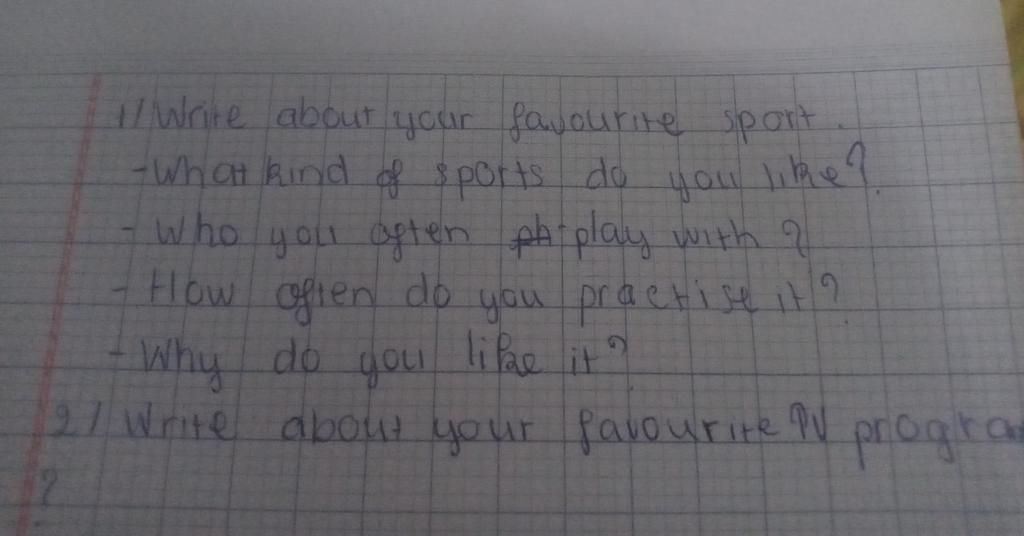 1/ Write about your favourite sport.
- What kind of sports do you like?
- Who you often play with?
- How often do you practise it?
- Why do you like it?
2/ Write about your favourite TV progra
?